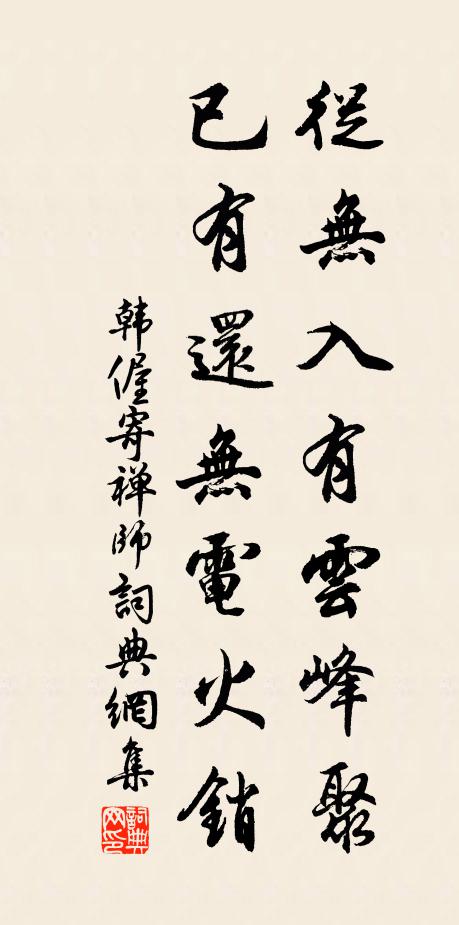 從無入有雲峰聚
已有還無電火銷
韩偓寄禅师詞典網集
詞典網印